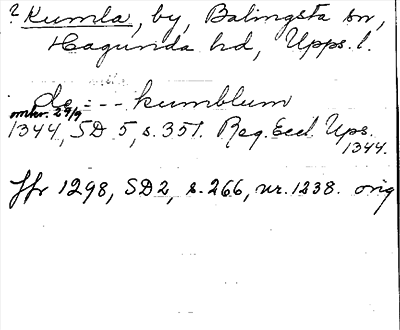 ? Kumla, by, Balingsta sn,
Hagunda hd, Upps. l.
de --- kumblum
omkr. 29/9
1344, SD 5, s. 351. Reg. Eccl. Ups.
1344.
Jfr 1298, SD 2, s. 266, nr. 1238. orig